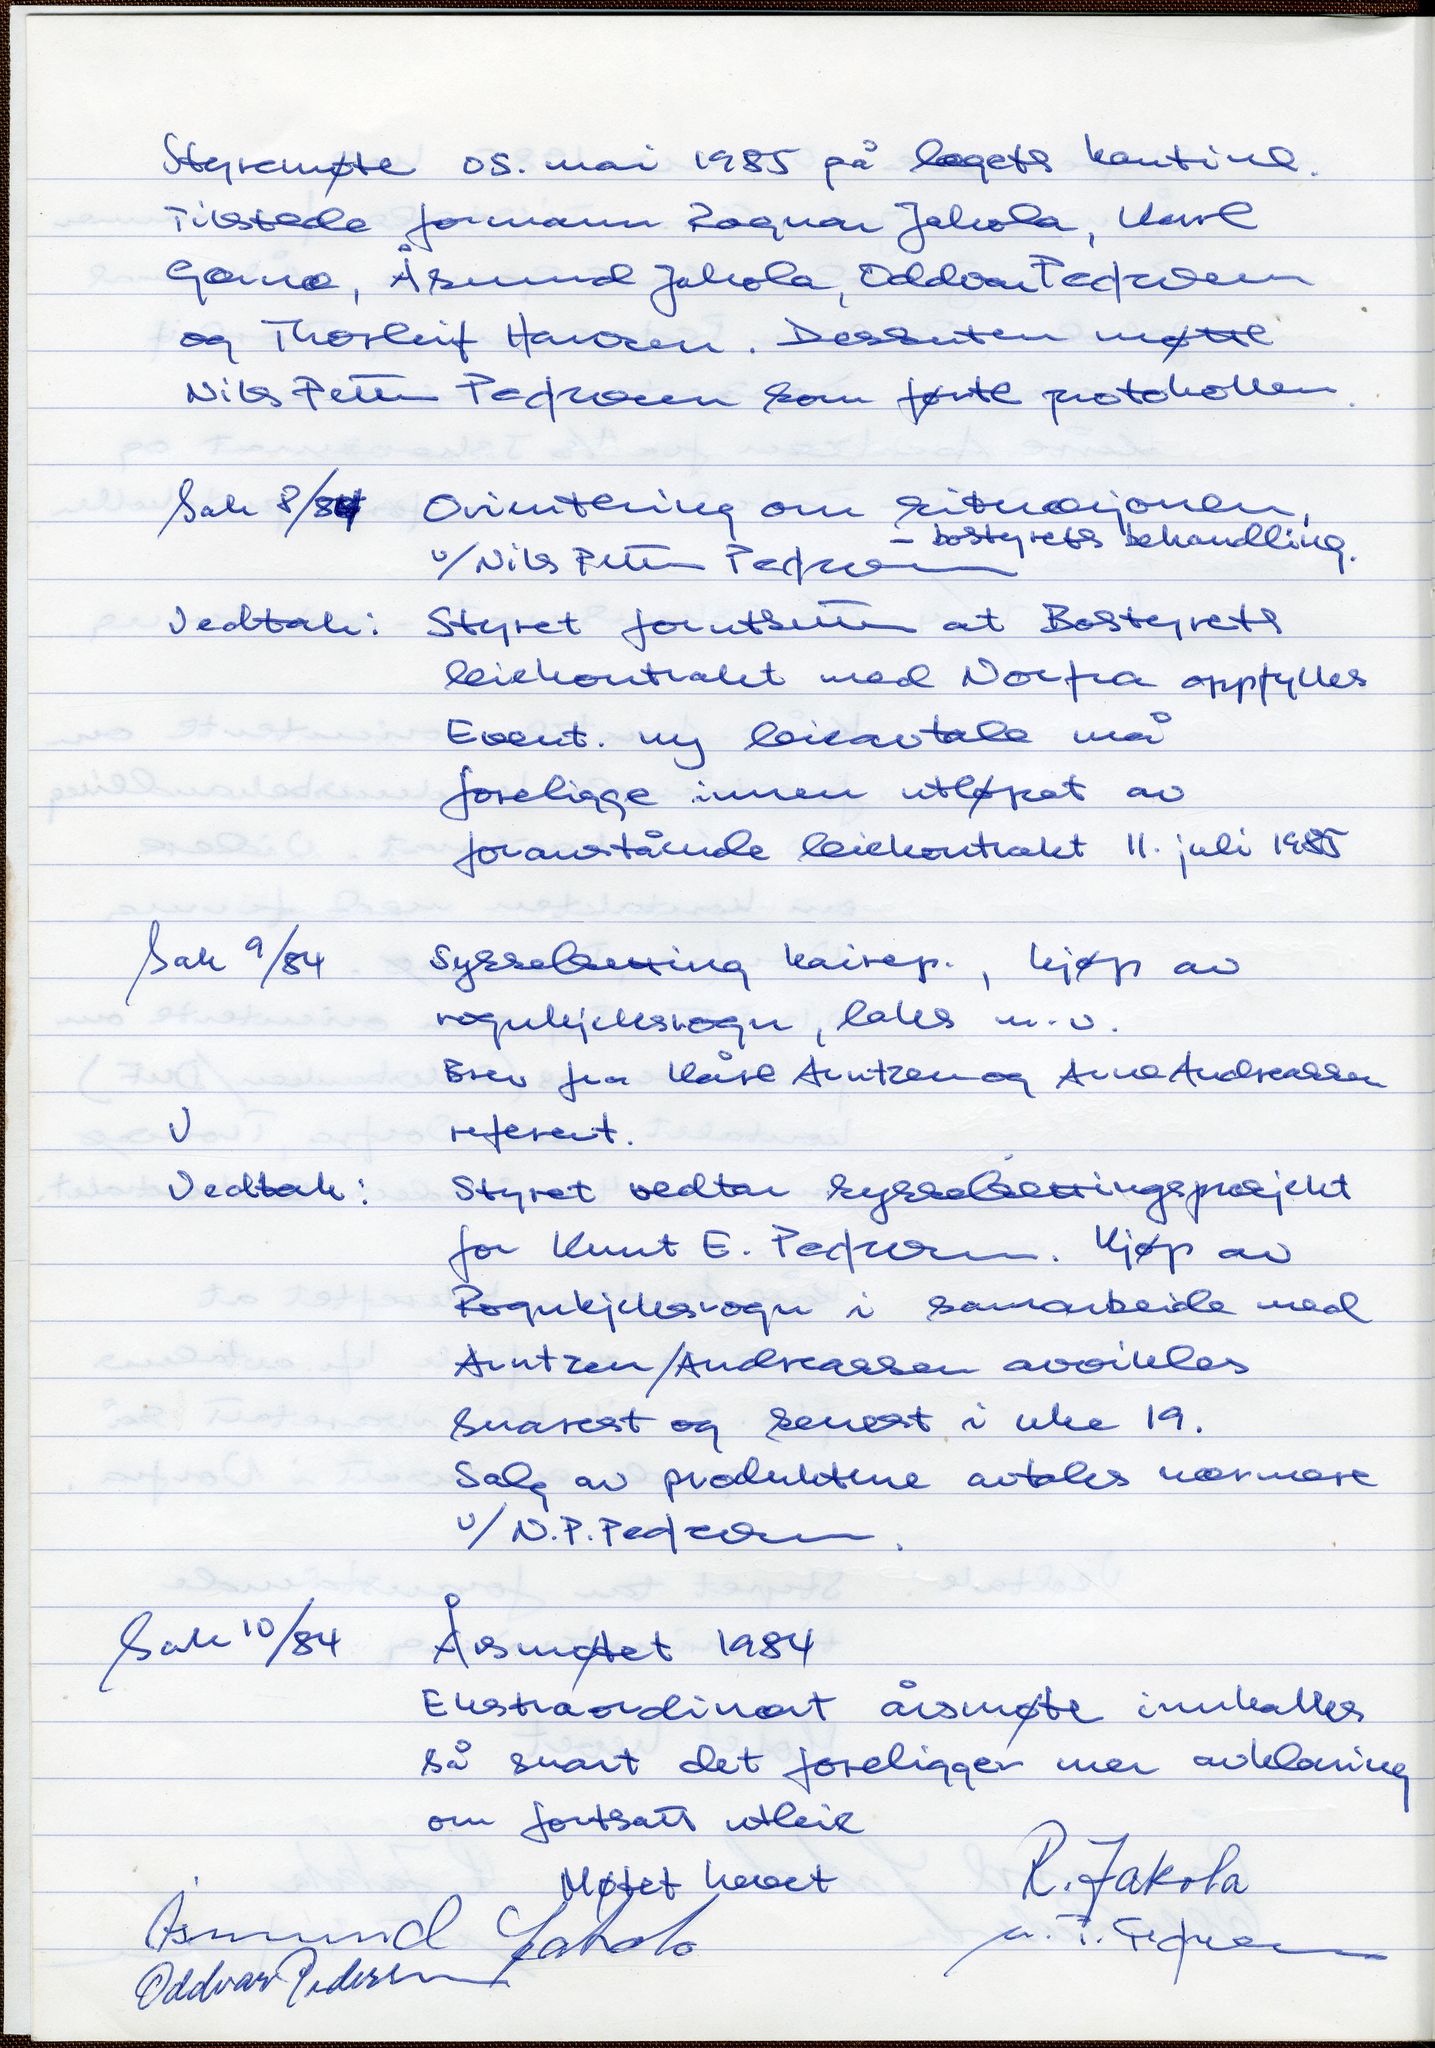 Styremøte 05. mai 1985 på lagets kantine.
Tilstede formann Ragnar Jakola, Karl
Åsmund Jakola, Oddvar Pedersen
og Thorleif Hansen. Dessuten møtte
Nils Petter Pedersen som førte protokollen.
Sak 8/84 Orientering om situasjonen,
- bostyrets behandling.
v/Nils Petter Pedersen
Vedtak: Styret forutsetter at Bostyrets
leiekontrakt med Norfra oppfylles
Event. ny leieavtale må
foreligge innen utløpet av
foranstående leiekontrakt 11. juli 1985
Sak 9/84 Sysselsetting kairep., kjøp av
rognkjeksrogn, laks m.v.
Brev fra Kåre Arntzen og Arne Andreassen
V referert.
Vedtak: Styret vedtar sysselsettingsprosjekt
for Knut E. Pedersen. Kjøp av
Rognkjeksrogn i samarbeide med
Arntzen/Andreassen avvikles
snarest og senest i uke 19.
Salg av produktene avtales nærmere
v/N.P. Pedersen.
Sak 10/84 Årsmøtet 1984
Ekstraordinært årsmøte innkalles
så snart det foreligger mer avklaring
om fortsatt utleie
Møtet hevet R. Jakola
Åsmund Jakola N. P. Pedersen
Oddvar Pedersen